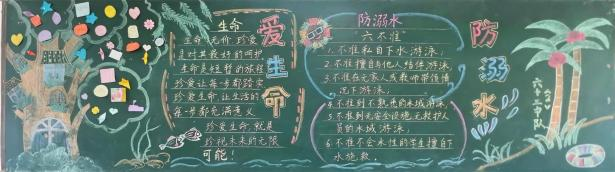 生命
生命无价 珍爱
是对其最好的呵护
生命是短暂的旅程
珍爱让每步都踏实
珍爱生命 让生活的
每一步都充满意义
珍爱生命,就是
珍视未来的无限
可能!
爱生命
防溺水
“六不准”
1.不准私自下水游泳;
2.不准擅自与他人结伴游泳;
3.不准在无家人或教师带领情
况下游泳;
4.不准到不熟悉的水域游泳;
5.不准到无安全设施、无救护人
员的水域游泳;
6.不准不会水性的学生擅自下
水施救。
防溺水
六十二中队